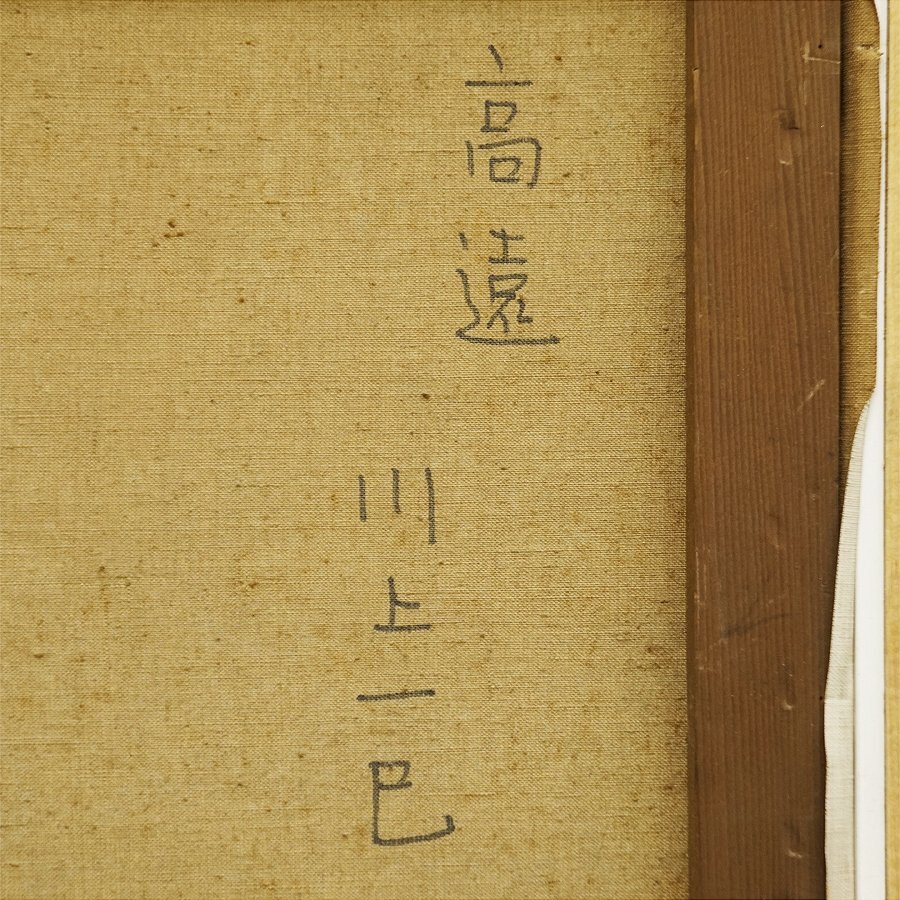 高遠
川上一巳